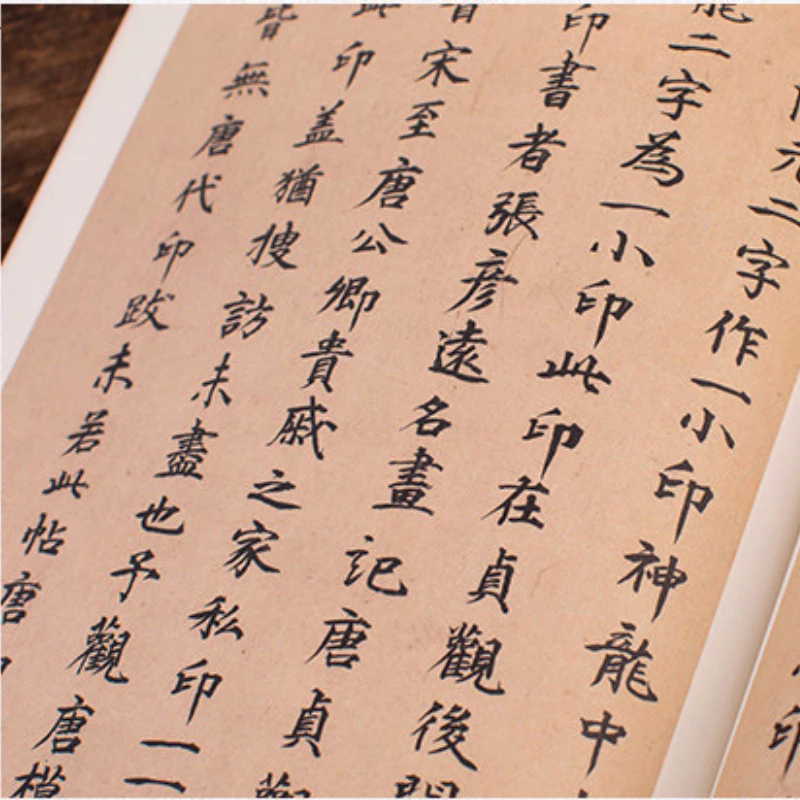 印
元二字作一小印神龍中
龍二字為一小印此印在貞觀後開
印書者張彥遠名畫記唐貞觀
宋至唐公卿貴戚之家私印一一
此印盖猶搜訪未盡也予觀唐模
皆無唐代印跋未若此帖唐